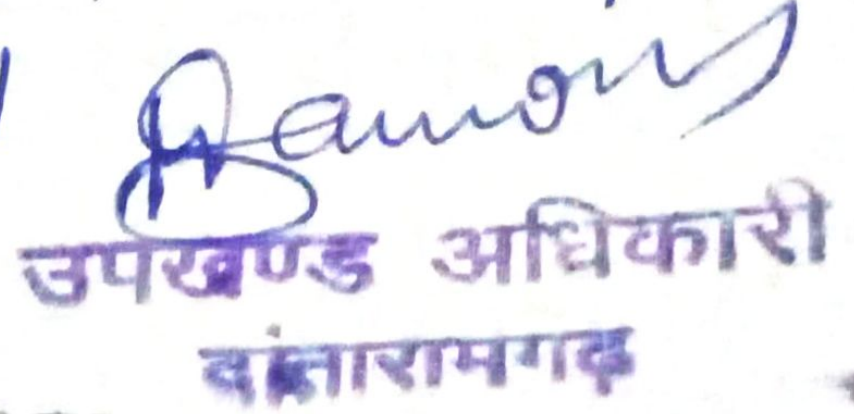 उपखण्ड अधिकारी
दांतारामगढ